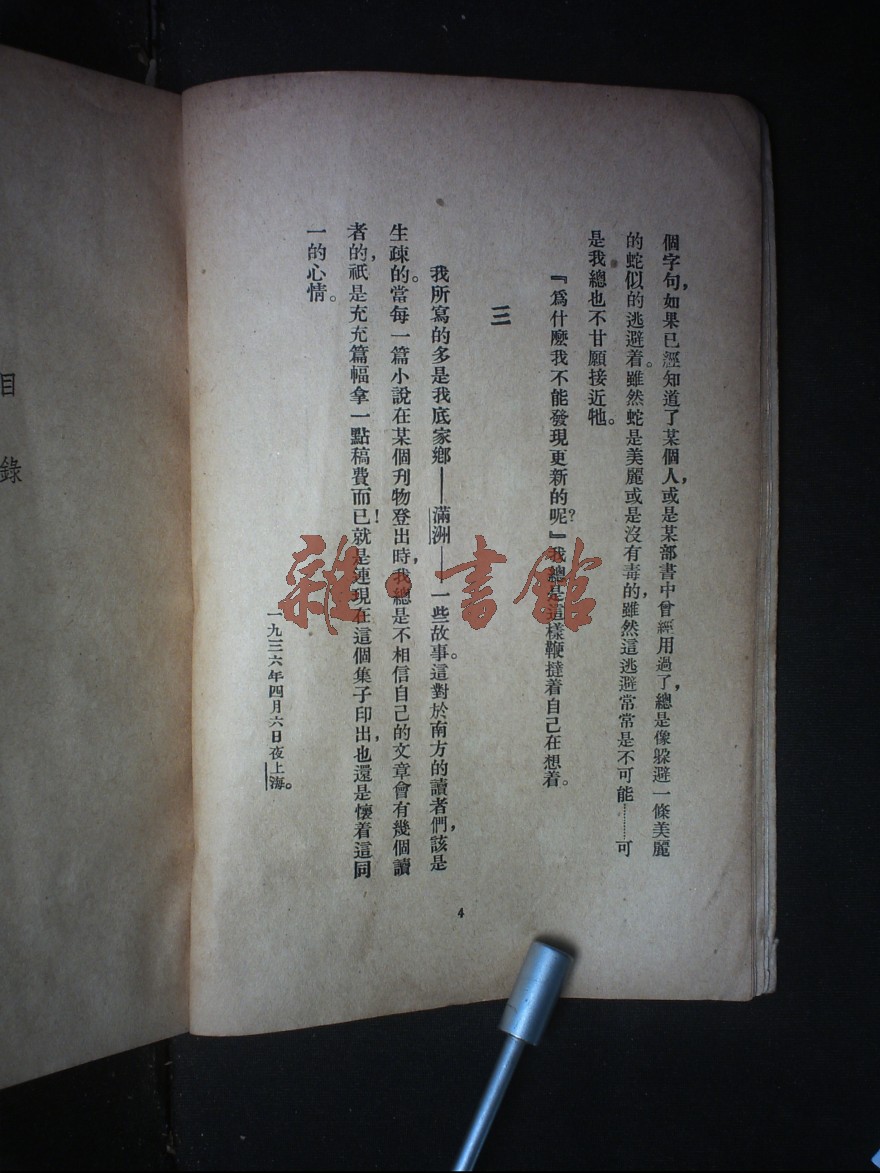 個字句，如果已經知道了某個人，或是某部書中曾經用過了，總是像躲避一條美麗
的蛇似的逃避着。雖然蛇是美麗或是沒有毒的，雖然這逃避常常是不可能………可
是我總也不甘願接近牠。
『爲什麼我不能發現更新的呢？』我總是這樣鞭撻着自己在想着。
三
我所寫的多是我底家鄉——滿洲——一些故事。這對於南方的讀者們，該是
生疎的。當每一篇小說在某個刋物登出時，我總是不相信自己的文章會有幾個讀
者的，祇是充充篇幅拿一點稿費而已！就是連現在這個集子印出，也還是懷着這同
一的心情。
一九三六年四月六日夜上海。
4
目錄
雜·書館